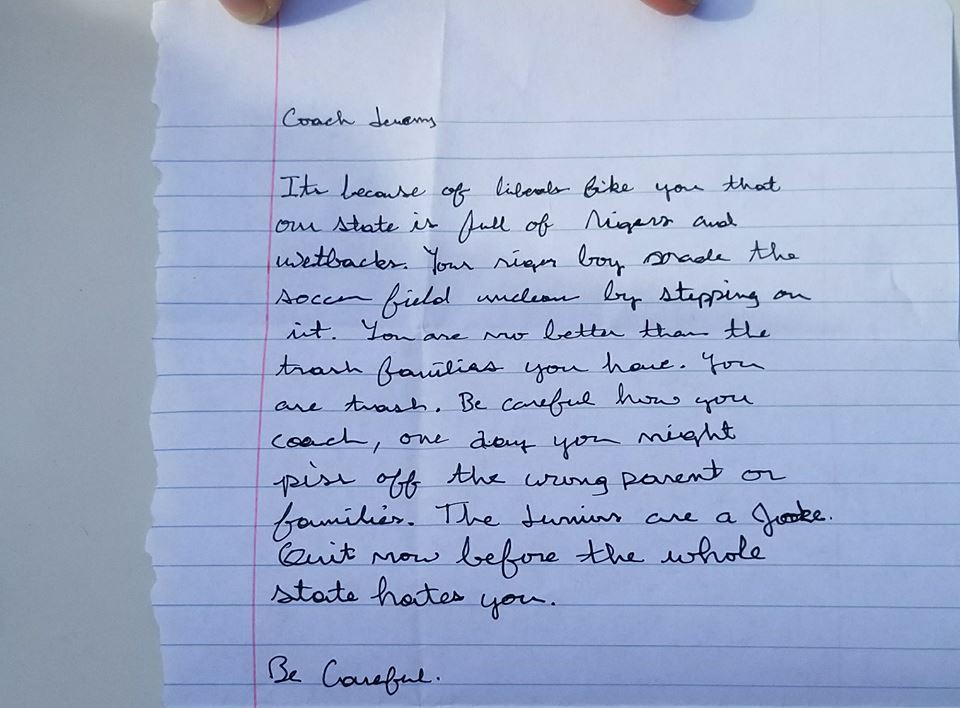 Coach Jeremy
Its because of liberals like you that
our state is full of Nigers and
wetbacks. Your niger boy made the
soccer field unclean by stepping on
it. You are no better than the
trash families you have. You
are trash. Be careful how you
coach, one day you might
piss off the wrong parent or
families. The Juniors are a Joke.
Quit now before the whole
state hates you.
Be Careful.